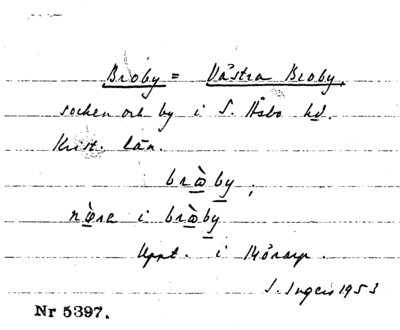 Broby = Västra Broby,
socken och by i S. Åsbo hd.
Krist. län.
brὼby,
nὼre i brὼby
Uppt. i Mörarp.
I. Ingers 1953
Nr 5397.